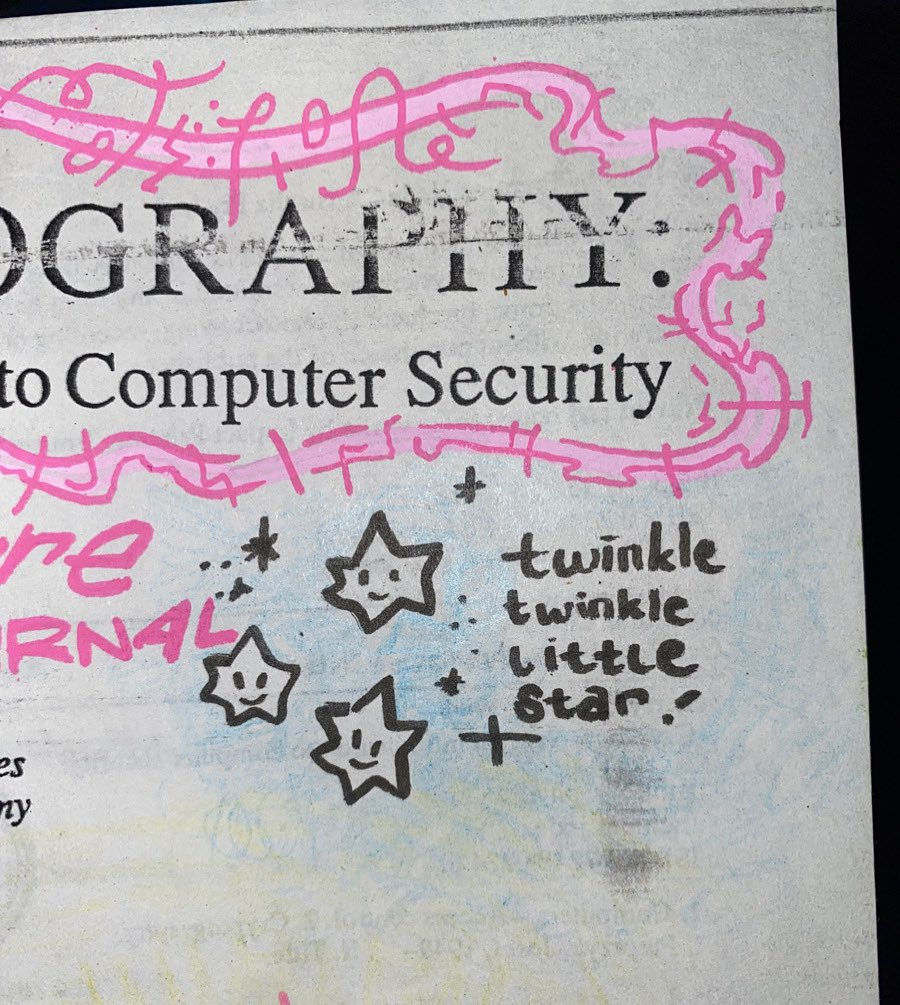 OGRAPHY:
to Computer Security
re
RNAL
twinkle
twinkle
little
star.
es
ny